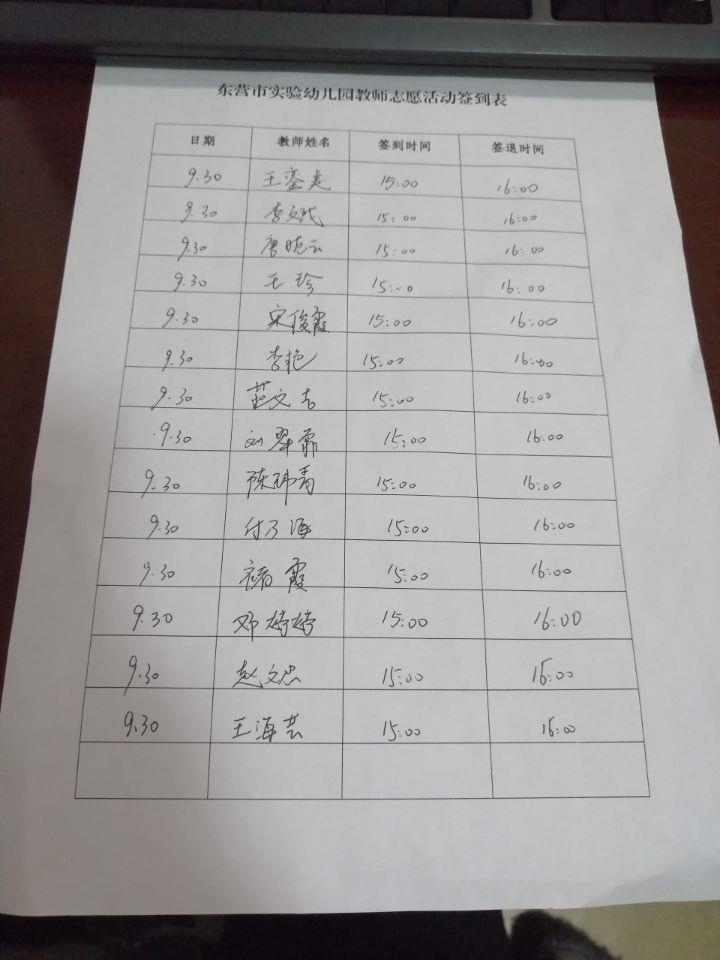 东营市实验幼儿园教师志愿活动签到表
日期 教师姓名 签到时间 签退时间
9.30 王銮美 15:00 16:00
9.30 李 15:00 16:00
9.30 唐晓云 15:00 16:00
9.30 王珍 15:00 16:00
9.30 宋俊霞 15:00 16:00
9.30 李艳 15:00 16:00
9.30 文吉 15:00 16:00
9.30 刘翠霏 15:00 16:00
9.30 陈玮青 15:00 16:00
9.30 付乃海 15:00 16:00
9.30 褚霞 15:00 16:00
9.30 邓婷婷 15:00 16:00
9.30 赵文忠 15:00 16:00
9.30 王海芸 15:00 16:00